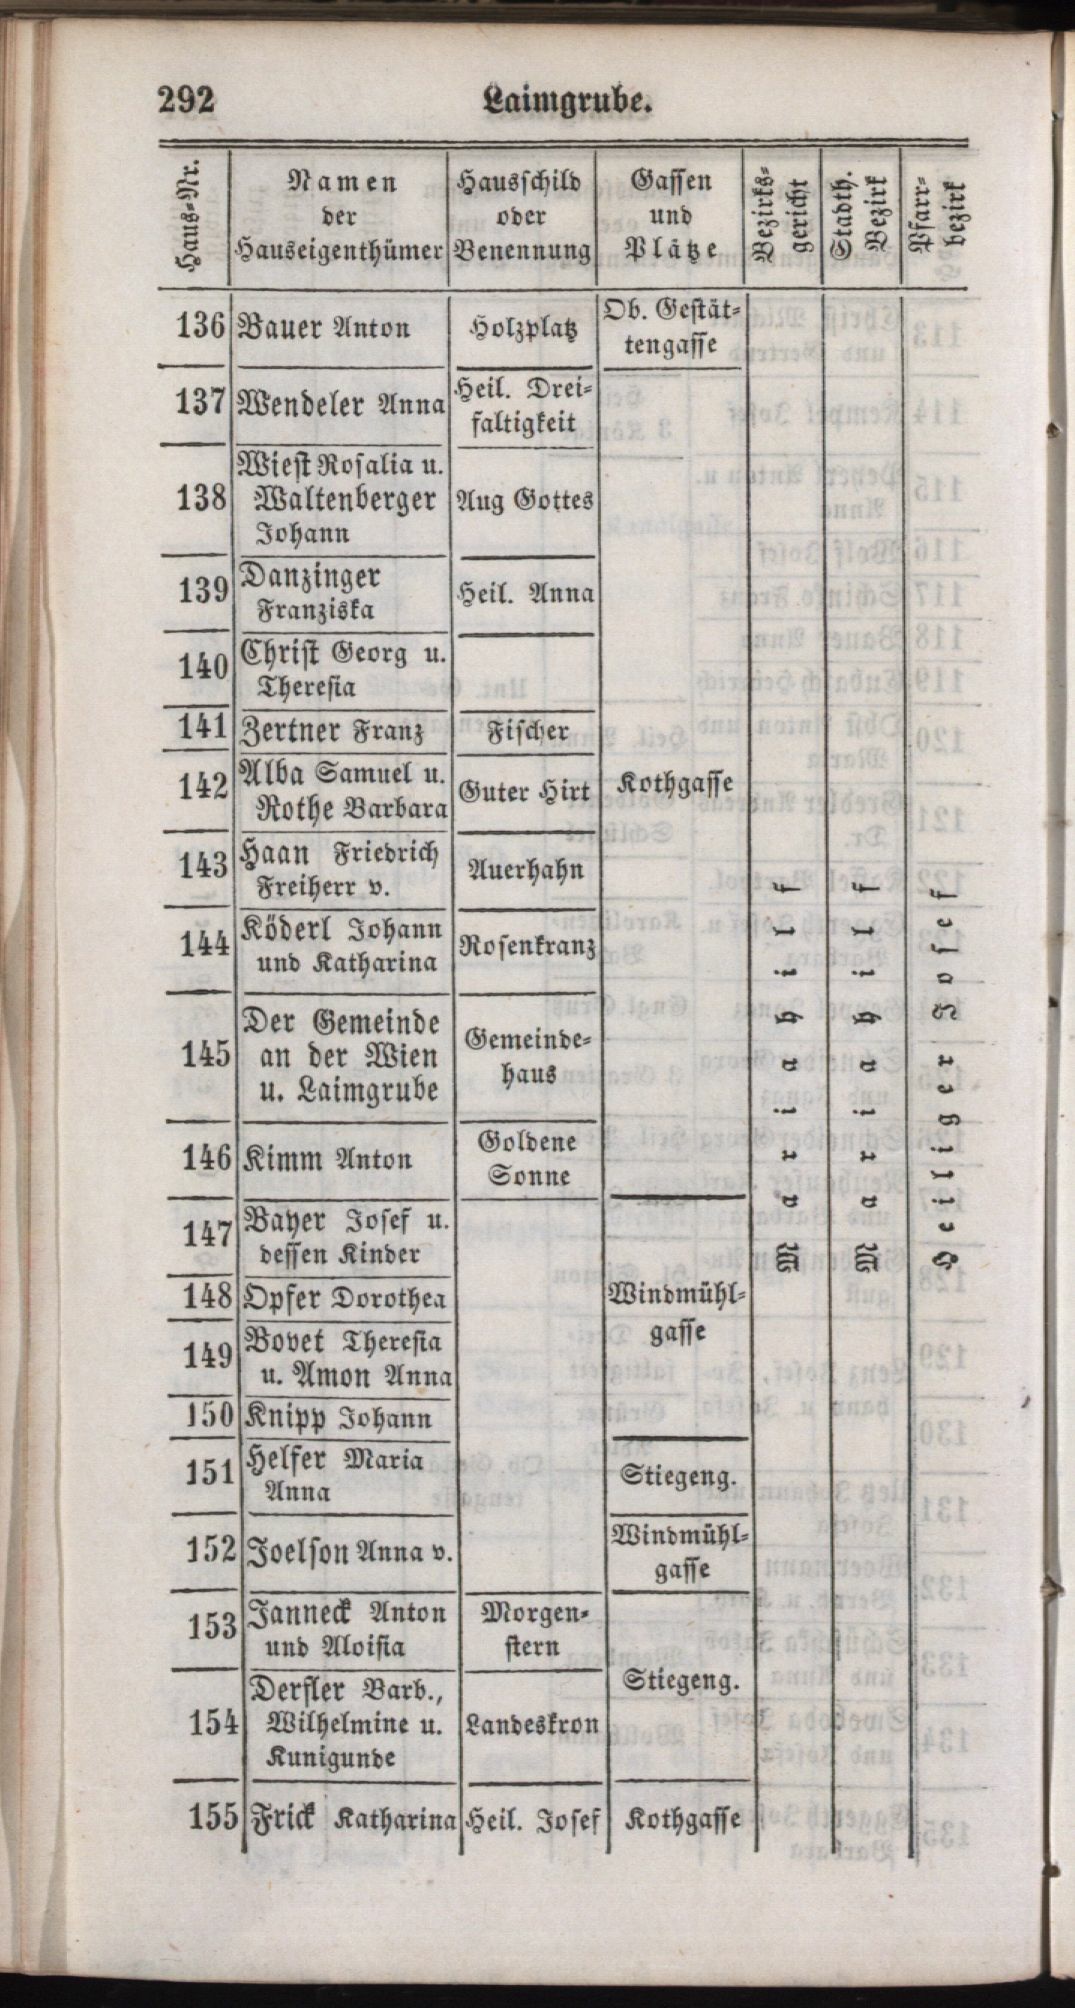 292
Laimgrube.
Haus-Nr.
Namen
der
Hauseigenthümer
Hausschild
oder
Benennung
Gassen
und
Plätze
Bezirks-
gericht
Stadth.
Bezirk
Pfarr-
bezirk
136 Bauer Anton Holzplatz Ob. Gestät-
tengasse
137 Wendeler Anna Heil. Drei-
faltigkeit
138 Wiest Rosalia u.
Waltenberger Aug Gottes
Johann
139 Danzinger Heil. Anna
Franziska
140 Christ Georg u.
Theresia
141 Zertner Franz Fischer
142 Alba Samuel u. Guter Hirt Kothgasse
Rothe Barbara
143 Haan Friedrich Auerhahn
Freiherr v.
144 Köderl Johann Rosenkranz
und Katharina
145 Der Gemeinde Gemeinde-
an der Wien haus
u. Laimgrube
146 Kimm Anton Goldene
Sonne
147 Bayer Josef u.
dessen Kinder
148 Opfer Dorothea Windmühl-
gasse
149 Bovet Theresia
u. Amon Anna
150 Knipp Johann
151 Helfer Maria Stiegeng.
Anna
152 Joelson Anna v. Windmühl-
gasse
153 Janneck Anton Morgen-
und Aloisia stern
Stiegeng.
154 Derfler Barb.,
Wilhelmine u. Landeskron
Kunigunde
155 Frick Katharina Heil. Josef Kothgasse
Mariahilf
Mariahilf
Heiliger Josef